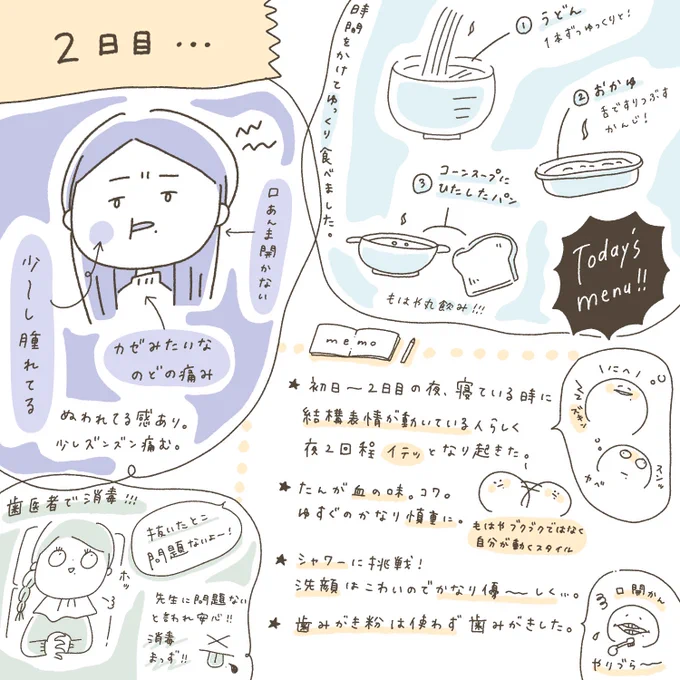 2日目...
口あんま開かない
少〜し腫れてる
カゼみたいな
のどの痛み
ぬわれてる感あり。
少しズンズン痛む。
時間をかけてゆっくり食べました。
① うどん
1本ずつゆっくりと!
② おかゆ
舌ですりつぶす
かんじ!
③ コーンスープに
ひたしたパン
もはや丸飲み!!!
Today's
menu!!
memo
★ 初日〜2日目の夜、寝ている時に
結構表情が動いている人らしく
夜2回程イテッとなり起きた。
★ たんが血の味。コワ。
ゆすぐのかなり慎重に。
もはやブクブクではなく
自分が動くスタイル
★ シャワーに挑戦!
洗顔はこわいのでかなり優〜しく...。
★ 歯みがき粉は使わず歯みがきした。
いにへ!
ズキッ
口開かん
やりづら〜
歯医者で消毒!!!
抜いたとこ
問題ないよ〜!
ホッ
先生に問題ない
と言われ安心!!
消毒
まっず!!